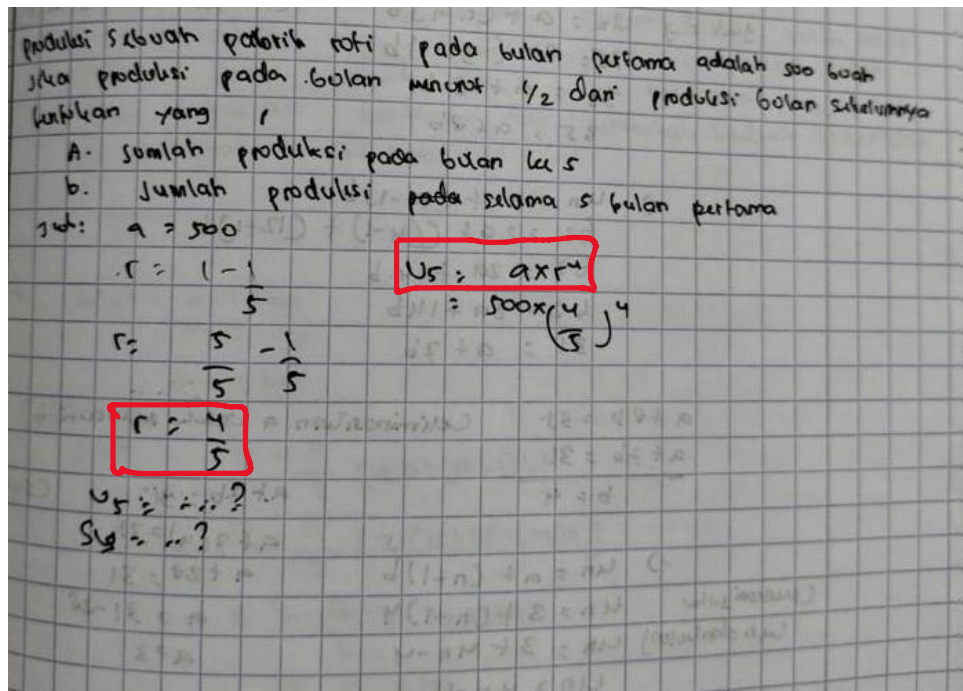 produksi sebuah pabrik roti pada bulan pertama adalah 500 buah
jika produksi pada bulan menurut 1/2 dari produksi bolan sebelumnya
tentukan yang
A. Jumlah produksi pada bulan ke 5
b. Jumlah produksi pada selama 5 bulan pertama
Jwb: a = 500
r = 1 - 1/5
U5 = a x r⁴
= 500 x (4/5)⁴
r = 5/5 - 1/5
r = 4/5
U5 = = ..?
= ..?